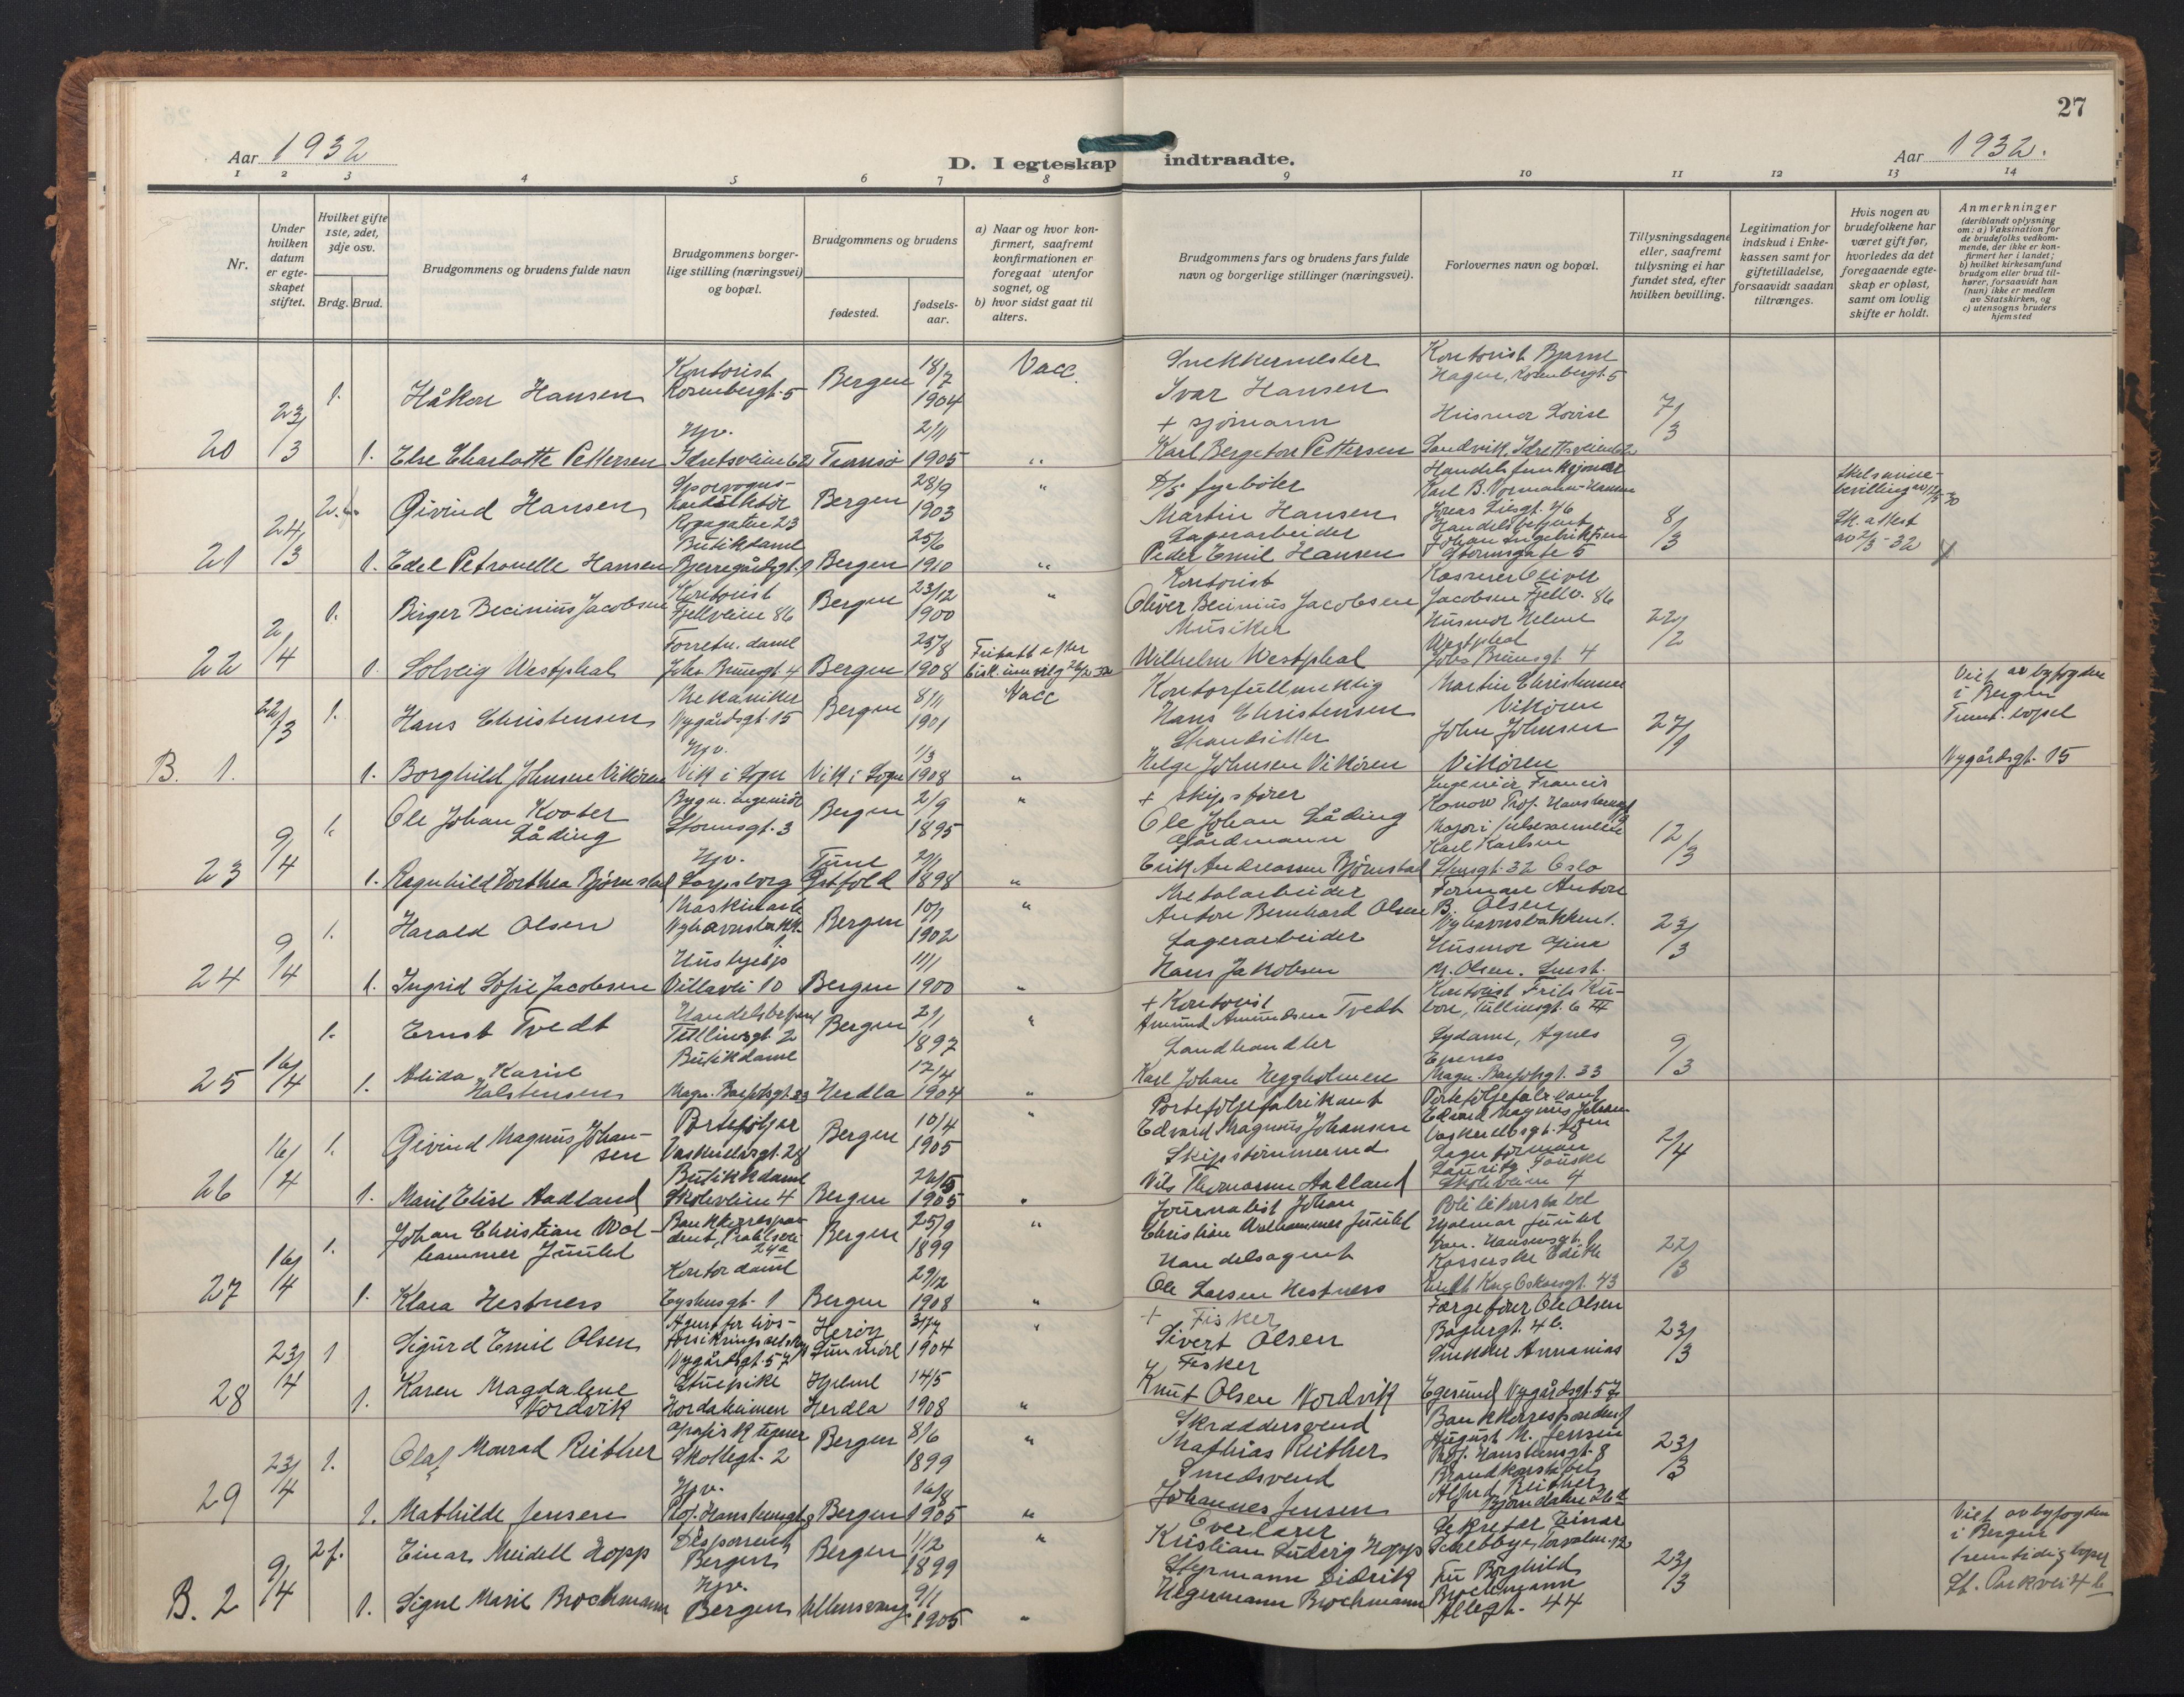 27
Aar 1932
D. I egteskap indtraadte.
Aar 1932.
1 2 3 4 5 6 7 8 9 10 11 12 13 14
Nr.
Under hvilken datum er egteskapet stiftet.
Hvilket gifte 1ste, 2det, 3dje osv.
Brdg. Brud.
Brudgommens og brudens fulde navn
Brudgommens borgerlige stilling (næringsvei) og bopæl.
Brudgommens og brudens
fødested.
fødselsaar.
a) Naar og hvor konfirmert, saafremt konfirmationen er foregaat utenfor sognet, og
b) hvor sidst gaat til alters.
Brudgommens fars og brudens fars fulde navn og borgerlige stillinger (næringsvei).
Forlovernes navn og bopæl.
Tillysningsdagene eller, saafremt tillysning ei har fundet sted, efter hvilken bevilling.
Legitimation for indskud i Enkekassen samt for giftetilladelse, forsaavidt saadan tiltrænges.
Hvis nogen av brudefolkene har været gift før, hvorledes da det foregaaende egteskap er opløst, samt om lovlig skifte er holdt.
Anmerkninger
(deriblandt oplysning om: a) Vaksination for de brudefolks vedkommende, der ikke er konfirmert her i landet; b) hvilket kirkesamfund brudgom eller brud tilhører, forsaavidt han (hun) ikke er medlem av Statskirken, og c) utensogns bruders hjemsted
20 23/3 1. Håkon Hansen Kontorist Rosenbergt. 5 Bergen 18/7 1904 Vacc. Snekkermester Ivar Hansen Kontorist Bjarne Hagen, Rosenbergt. 5 7/3
1. Else Charlotte Pettersen Hjv. Idretsveien 62 Tromsø 2/11 1905 " + sjømann Karl Bergeton Pettersen Husmor Lovise Sandvik, Idrettsveien 62
21 24/3 2. Øivind Hansen Sporvogns- konduktør Bergen 28/9 1903 " D/S fyrbøter Martin Hansen Handelsfunksjonær Karl B. Vormann-Hansen 8/3 Skilsmisse- bevilling
1. Edel Petronelle Hansen Butikdame Bjerregårdsgt. 9 Bergen 25/6 1910 " Lagerarbeider Peder Emil Hansen Handelsbetjent Johan Ingebriktsen Stormsgate 5 Sk. attest av 2/3-32
22 2/4 1. Birger Becinius Jacobsen Kontorist Fjellveien 86 Bergen 23/12 1900 " Kontorist Oliver Becinius Jacobsen Kasserer Oliver Jacobsen Fjellv. 86 22/2
1. Solveig Westphal Forretn. dame Johs Brunsgt. 4 Bergen 25/8 1908 Musiker Wilhelm Westphal Husmor Helene Westphal Johs Brunsgt. 4
B. 1. 22/3 1. Hans Christensen Mekaniker Nygårdsgt. 15 Bergen 8/11 1901 Vacc Kontorfullmektig Hans Christensen Martin Christensen Vikøren 27/1 Viet av byfogden i Bergen
1. Borghild Johnsen Vikøren Hjv. Vik i Sogn Vik i Sogn 1/3 1908 " Strandsitter Helge Johnsen Vikøren John Johnsen Vikøren Nygårdsgt. 15
23 9/4 1. Ole Johan Koober Låding Bygn. ingeniør Stormsgt. 3 Bergen 2/9 1895 " + skipsfører Ole Johan Låding Ingeniør Francis Konow Prof. Hansteensgt 12/3
1. Ragnhild Dorthea Bjørnstad Hjv. Sarpsborg Tune Østfold 29/1 1898 " Gårdmann Erik Andreassen Bjørnstad Major i frelsesarmeen Karl Karlsen Stensgt. 32 Oslo
24 9/4 1. Harald Olsen Maskinarb. Nyhavnsbakk. 1. Bergen 10/1 1902 " Metalarbeider Anton Bernhard Olsen Formann Anton B. Olsen Nyhavnsbakken 1. 23/3
1. Ingrid Sofie Jacobsen Villavei 10 Bergen 11/1 1900 " Lagerarbeider Hans Jakobsen Husmor Gina M. Olsen.
25 16/4 1. Ernst Tvedt Handelsbetjent Tullinsgt. 2 Bergen 2/1 1897 " + Kontorist Amund Amundsen Tvedt Kontorist Frits Tullinsgt. 6 III 9/3
1. Alida Karine Halstensen Butikdame Magn. Barfotsgt. 33 Herdla 17/4 1904 " Landhandler Karl Johan Heggholmen Sydame, Agnes Magn. Barfotsgt. 33
26 16/4 1. Øivind Magnus Johansen Portefølger Vaskerelvsgt. 28 Bergen 10/4 1905 " Porteføljefabrikant Edvard Magnus Johansen Porteføljefabrikant Edvard Magnus Johansen Vaskerelvsgt. 28 2/4
1. Marie Elise Aadland Butikkdame Skoleveien 4 Bergen 26/5 1905 " Skipstømmermd Nils Thomassen Aalland Lagerformann Lauritz Fauske Skoleveien 4
27 16/4 1. Johan Christian Walhammer Juuhl Bankkorrespondent, 24a Bergen 25/9 1899 " Journalist Johan Christian Walhammer Juuhl Politikonstabel Hjalmar Juuhl 22/3
1. Klara Hestnes Kontordame Tyskesgt. 1 Bergen 29/12 1908 " Handelsagent Ole Larsen Hestnes Kasserske Edith 43
28 23/4 1 Sigurd Emil Olsen Agent for livsforsikringsselskap Nygårdsgt. 57 Herøy Sunnmøre 31/7 1904 " + Fisker Sivert Olsen Færgefører Ole Olsen Bøhrgt. 4b. 23/3
1. Karen Magdalene Nordvik Stuepike Hordaheimen Hjelme Herdla 14/5 1908 " Fisker Knut Olsen Nordvik Snekker Annanias Egesund Nygårdsgt. 57
29 23/4 1. Olaf Monrad Reither Grafisk tegner Skoltegt. 2 Bergen 8/6 1899 " Skreddersvend Mathias Reither Bankkorrespondent August M. Jensen Prof. Hansteensgt. 8 23/3
1. Mathilde Jensen Hjv. Prof. Hansteensgt. 8 Bergen 16/8 1905 " Smedsvend Johannes Jensen Brandkonstabel Alfred Reither
B. 2 9/4 2f. Einar Meidell Hopp Disponent Bergen Bergen 1/12 1899 " Overlærer Kristian Ludvig Hopp Sekretær Einar 23/3 Viet av byfogden i Bergen
1. Signe Marie Brochmann Hjv. Bergen Ullensvang 9/1 1905 " Styrmann Didrik Hegermann Brochmann Fru Borghild Brochmann Allegt. 44 fremtidig bopel St. Parkvei 4 b